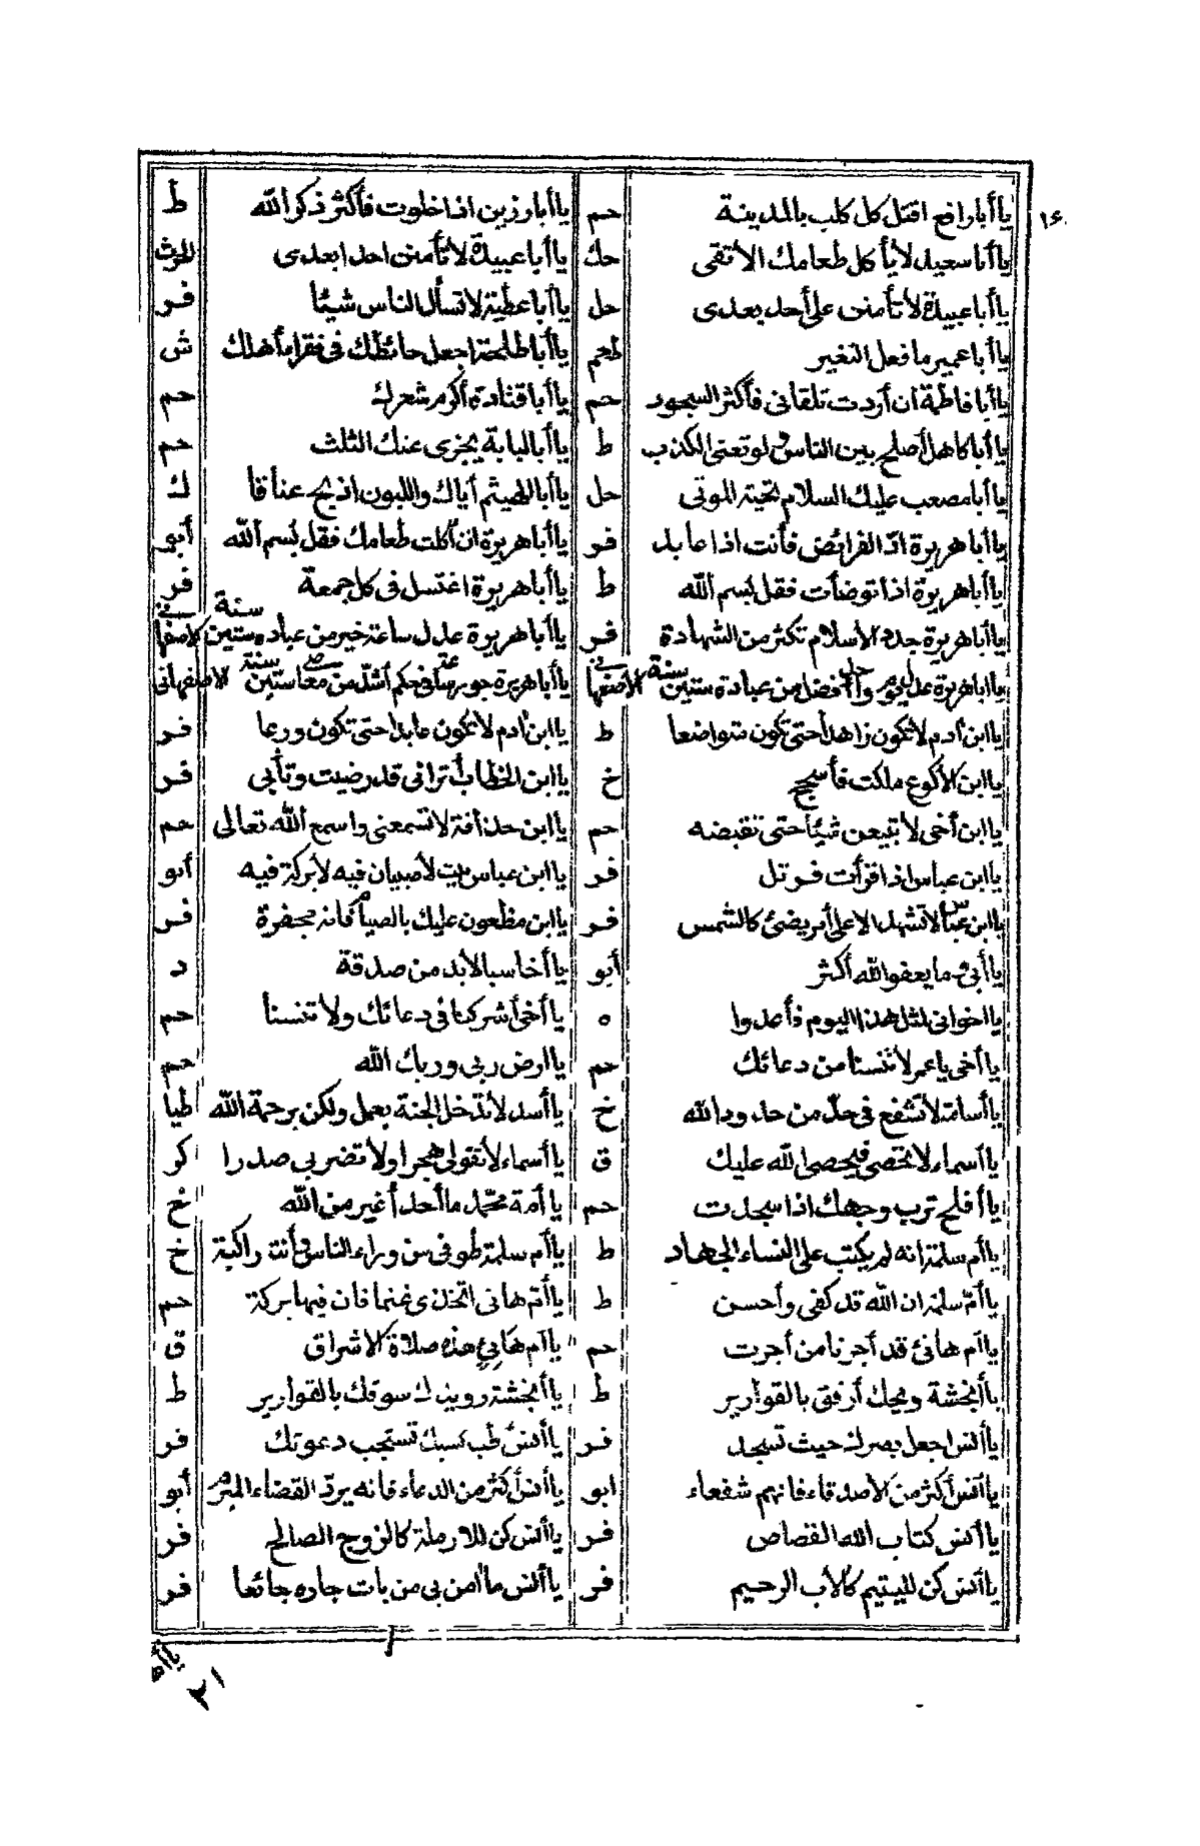 ١٤٠
يا أبا رافع اقتل كل كلب بالمدينة حم يا أبا رزين اذا خلوت فأكثر ذكر الله ط
يا أبا سعيد لا يأكل طعامك الا تقى حك يا أبا عبيدة لا تأمنن احدا بعدى
يا أبا عبيدة لا تأمنن على أحد بعدى حل يا أبا عطية لا تسأل الناس شيئا فر
يا أبا عمير ما فعل النغير يا أبا طلحة اجعل حائطك فى فقراء أهلك ش
يا أبا فاطمة ان أردت تلقانى فأكثر السجود حم يا أبا قتادة أكرم شعرك حم
يا أبا كاهل أصلح بين الناس ولو تعنى الكذب ط يا أبا لبابة يجزى عنك الثلث حم
يا أبا مصعب عليك السلام تحية الموتى حل يا أبا الهيثم أياك واللبون اذبح عناقا ك
يا أبا هريرة ادّ الفرائض فأنت اذا عابد فر يا أبا هريرة ان أكلت طعامك فقل بسم الله أبو
يا أبا هريرة اذا توضأت فقل بسم الله ط يا أبا هريرة اغتسل فى كل جمعة فر
يا أبا هريرة جدد الاسلام تكثر من الشهادة فر يا أبا هريرة عدل ساعة خير من عبادة ستين سنة الاصفهانى
يا أبا هريرة عدل يوم واحد أفضل من عبادة ستين سنة الاصفهانى يا أبا هريرة جور ساعة فى حكم أشدّ من معاصى ستين سنة الاصفهانى
يا ابن آدم لا تكون زاهدا حتى تكون متواضعا ط يا ابن آدم لا تكون عابدا حتى تكون ورعا فر
يا ابن الاكوع ملكت فأسجح خ يا ابن الخطاب أترانى قد رضيت وتأبى فر
يا ابن أخى لا تبيعن شيئا حتى تقبضه حم يا ابن حذافة لا تسمعنى واسمع الله تعالى حم
يا ابن عباس اذا قرأت فرتل فر يا ابن عباس بيت لا صبيان فيه لا بركة فيه أبو
يا ابن عباس لا تشهد الا على أمر يضئ كالشمس فر يا ابن مظعون عليك بالصيام فانه مجفرة فر
يا أبىّ ما يعفو الله أكثر أبو يا أخا سبا لا بد من صدقة د
يا اخوانى لمثل هذا اليوم فأعدوا ه يا أخى أشركنا فى دعائك ولا تنسنا حم
يا أخى يا عمر لا تنسنا من دعائك حم يا ارض ربى وربك الله حم
يا أسامة لا تشفع فى حدّ من حدود الله خ يا أسد لا تدخل الجنة بعمل ولكن برحمة الله طيا
يا أسماء لا تحصى فيحصى الله عليك ق يا أسماء لا تقولى هجرا ولا تضربى صدرا كر
يا أفلح ترب وجهك اذا سجدت حم يا أمة محمد ما أحد أغير من الله خ
يا أم سلمة انه لم يكتب على النساء الجهاد ط يا أم سلمة طوفى من وراء الناس وأنت راكبة خ
يا أمّ سلمة ان الله قد كفى وأحسن ط يا أمّ هانى اتخذى غنما فان فيها بركة حم
يا أم هانئ قد أجرنا من أجرت حم يا أم هانئ هذه صلاة الاشراق ق
يا أنجشة ويحك أرفق بالقوارير ط يا أنجشة رويدك سوقك بالقوارير ط
يا أنس اجعل بصرك حيث تسجد فر يا أنس طب كسبك تستجب دعوتك فر
يا أنس أكثر من الاصدقاء فانهم شفعاء ابو يا أنس أكثر من الدعاء فانه يردّ القضاء المبرم أبو
يا أنس كتاب الله القصاص فر يا أنس كن للارملة كالزوج الصالح فر
يا أنس كن لليتيم كالاب الرحيم فر يا أنس ما آمن بى من بات جاره جائعا فر
٢١